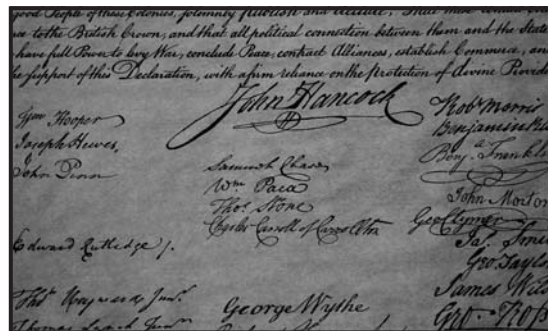 good People of these Colonies, solemnly publish and declare, That these
ce to the British Crown, and that all political connection between them and the State
have full Power to levy War, conclude Peace, contract Alliances, establish Commerce, an
he support of this Declaration, with a firm reliance on the Protection of divine Provid
John Hancock
Wm Hooper
Joseph Hewes,
John Penn
Edward Rutledge /.
Thos Heyward Junr.
Thomas Lynch Junr.
Samuel Chase
Wm. Paca
Thos. Stone
Charles Carroll of Carrollton
George Wythe
Robt Morris
Benjamin Ru
Benja. Frankli
John Morton
Geo Clymer
Jas. Smi
Geo. Taylo
James Wils
Geo. Ross